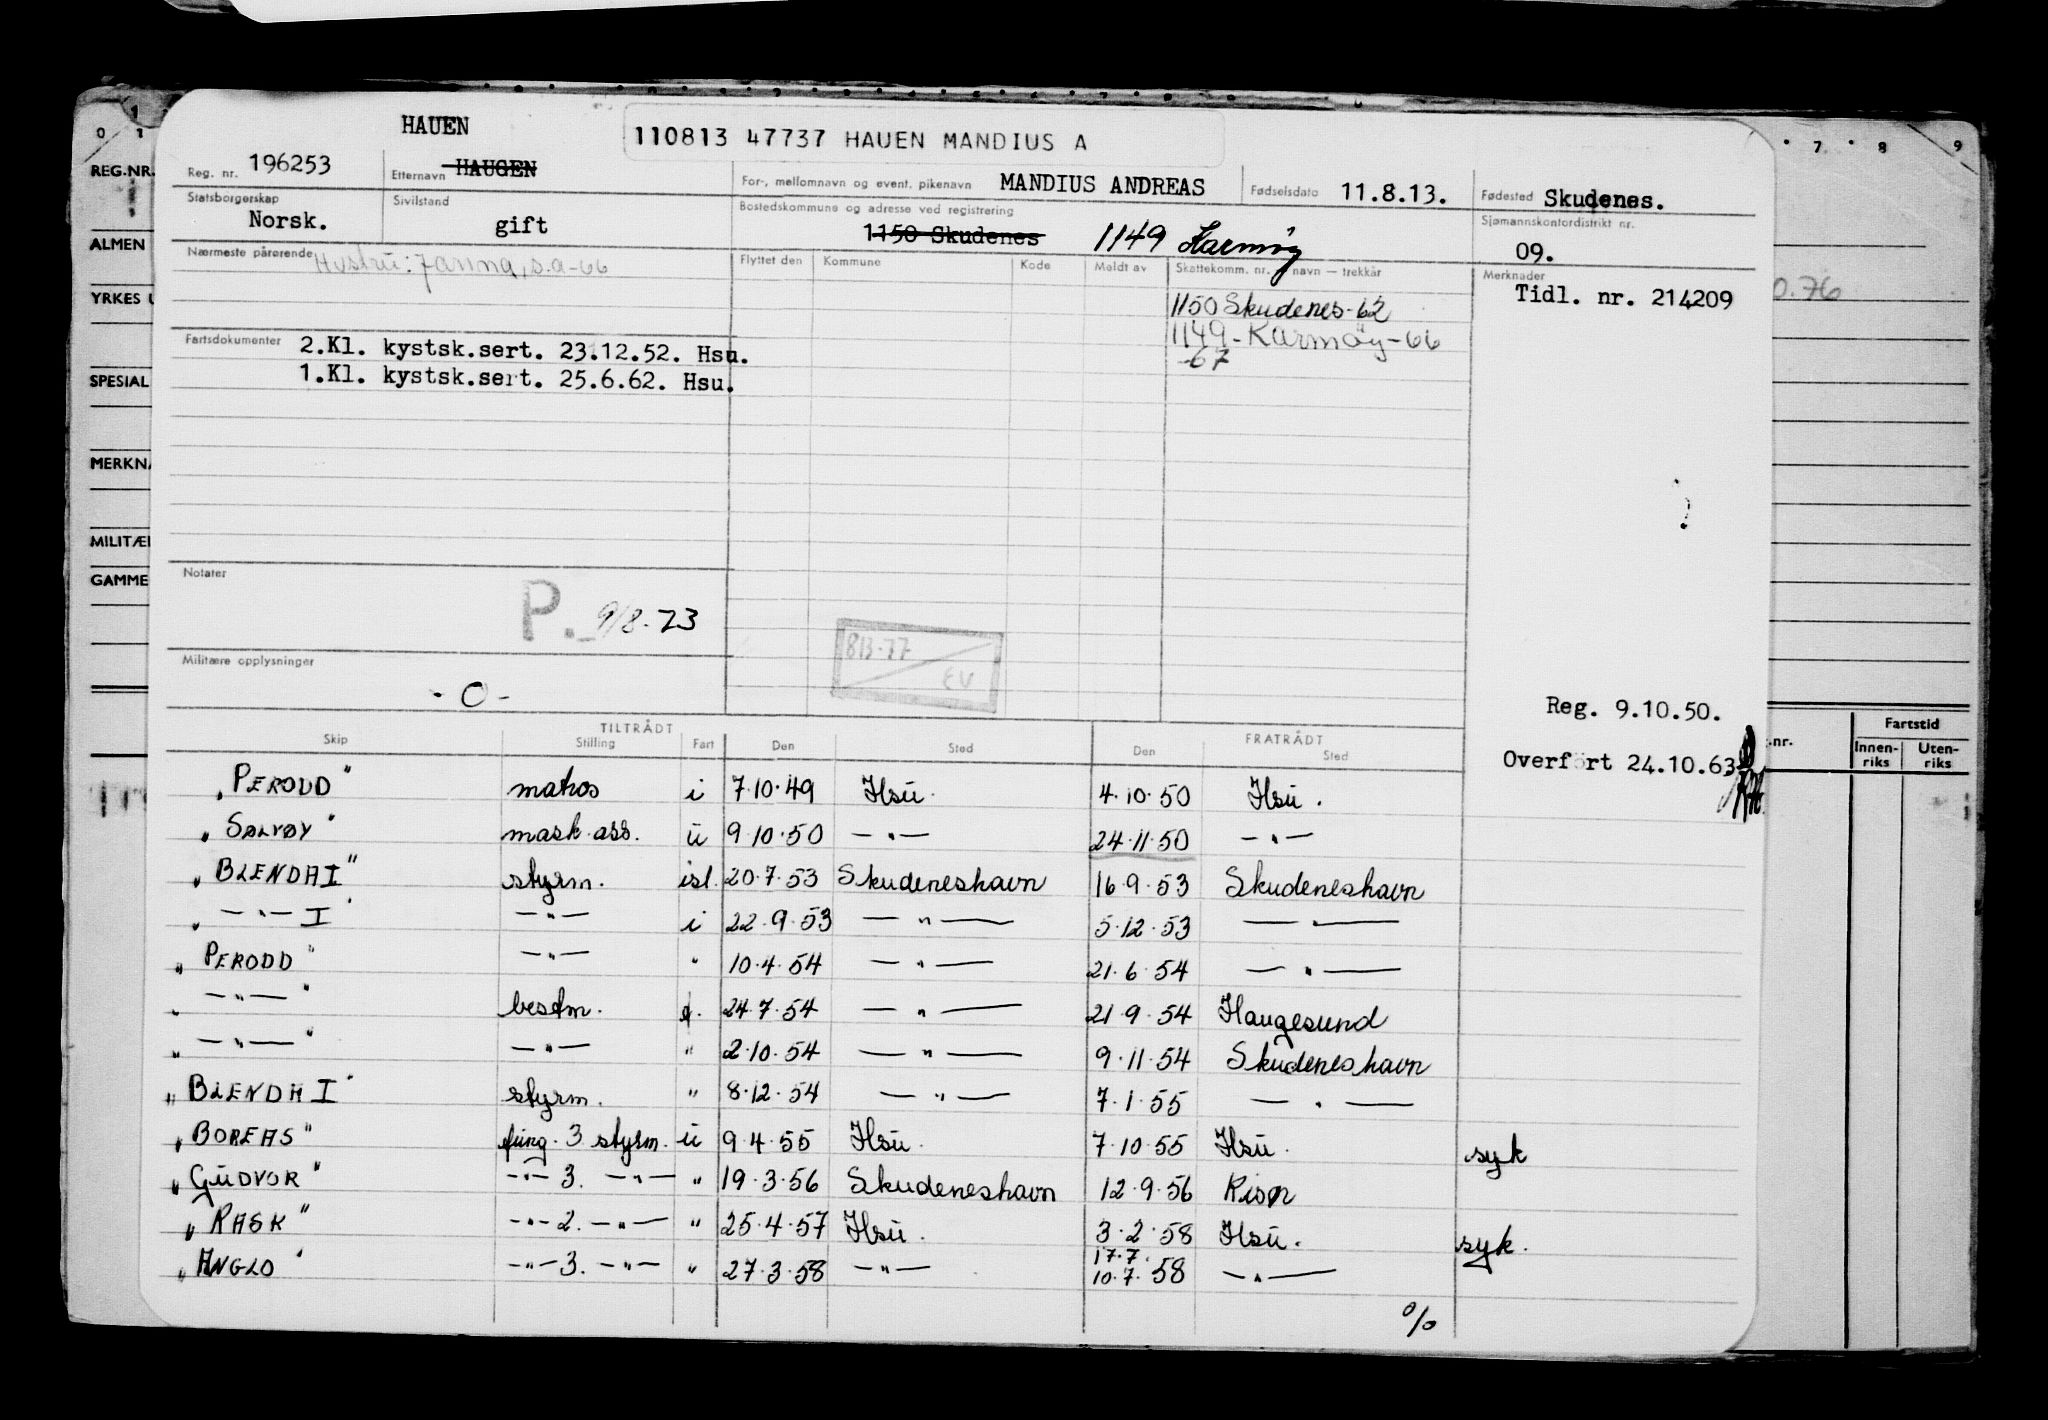 HAUEN
110813 47737 HAUEN MANDIUS A
Reg. nr. 196253 Etternavn HAUGEN For-, mellomnavn og event. pikenavn MANDIUS ANDREAS Fødselsdato 11.8.13. Fødested Skudenes.
Statsborgerskap Sivilstand Bostedskommune og adresse ved registrering Sjømannskontordistrikt nr.
Norsk. gift 1150 Skudenes 1149 Karmøy 09.
Nærmeste pårørende Hustru: Janna, s.a-66 Flyttet den Kommune Kode Meldt av Skattekomm. nr. navn — trekkår Merknader
Tidl. nr. 214209
1150 Skudenes-62
1149-Karmøy-66
-67
Fartsdokumenter 2.Kl. kystsk.sert. 23.12.52. Hsu.
1.Kl. kystsk.sert. 25.6.62. Hsu.
Notater
P. 9/8-73
813-77
EV
Militære opplysninger
-O-
Reg. 9.10.50.
Overført 24.10.63
TILTRÅDT FRATRÅDT
Skip Stilling Fart Den Sted Den Sted
"PERODD" matros i 7.10.49 Hsu. 4.10.50 Hsu.
"SALVØY" mask.ass. u 9.10.50 —"— 24.11.50 —"—
"BLENDH I" styrm. isl. 20.7.53 Skudeneshavn 16.9.53 Skudeneshavn
"—"— I" —"— i 22.9.53 —"— 5.12.53 —"—
"PERODD" —"— " 10.4.54 —"— 21.6.54 —"—
"—"—" bestm. f. 24.7.54 —"— 21.9.54 Haugesund
"—"—" —"— " 2.10.54 —"— 9.11.54 Skudeneshavn
"BLENDH I" styrm. " 8.12.54 —"— 7.1.55 —"—
"BOREAS" fung. 3 styrm. u 9.4.55 Hsu. 7.10.55 Hsu. syk
"GUDVOR" —"— 3. —"— " 19.3.56 Skudeneshavn 12.9.56 Risør
"RASK" —"— 2. —"— " 25.4.57 Hsu. 3.2.58 Hsu. syk.
"ANGLO" —"— 3. —"— " 27.3.58 —"— 17.7. 10.7.58 —"—
%
REG.NR.
ALMEN
YRKES
SPESIAL
MERKNA
MILITÆR
GAMME
0 1
7 8 9
0.76
.nr.
Fartstid
Innen-riks Uten-riks